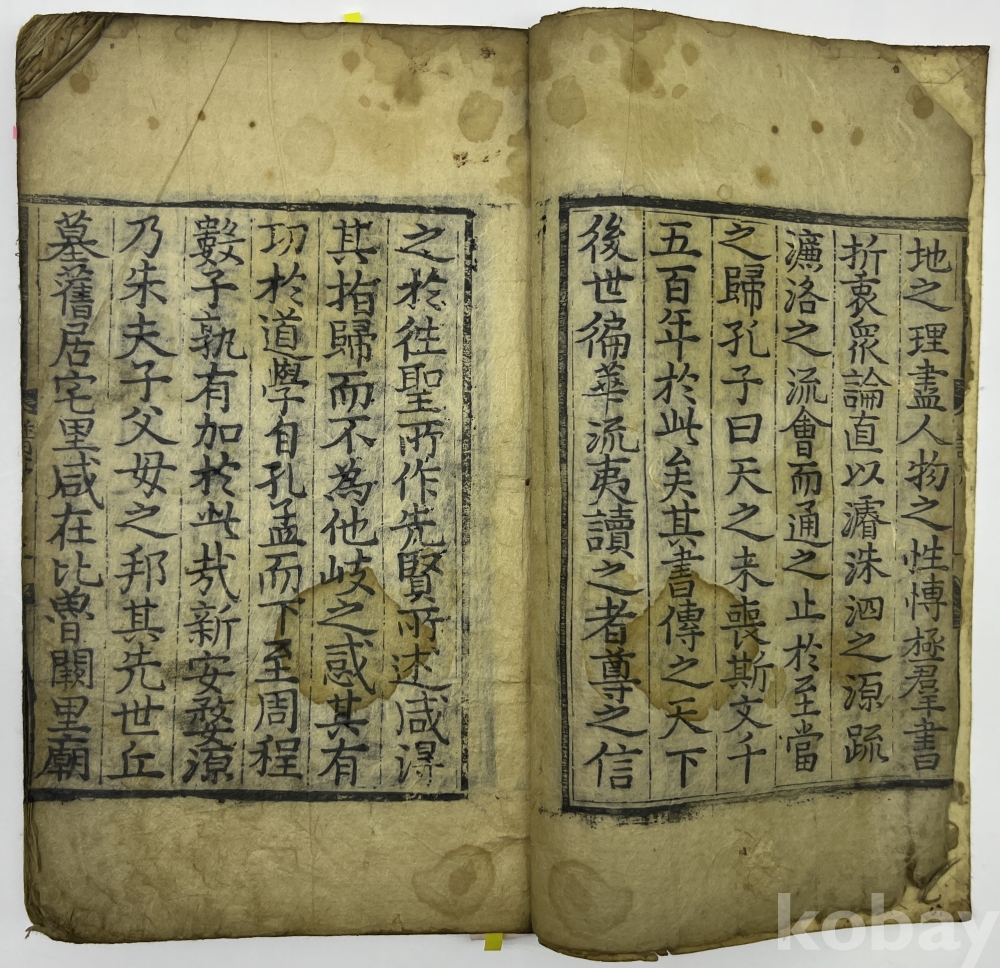 地之理盡人物之性博極群書
折衷衆論直以濬洙泗之源疏
濂洛之流會而通之止於至當
之歸孔子曰天之未喪斯文千
五百年於此矣其書傳之天下
後世徧華流夷讀之者尊之信
之於徃聖所作先賢所述咸得
其指歸而不為他歧之惑其有
功於道學自孔孟而下至周程
數子孰有加於此哉新安婺源
乃朱夫子父母之邦其先世丘
墓舊居宅里咸在比魯闕里廟
kobay